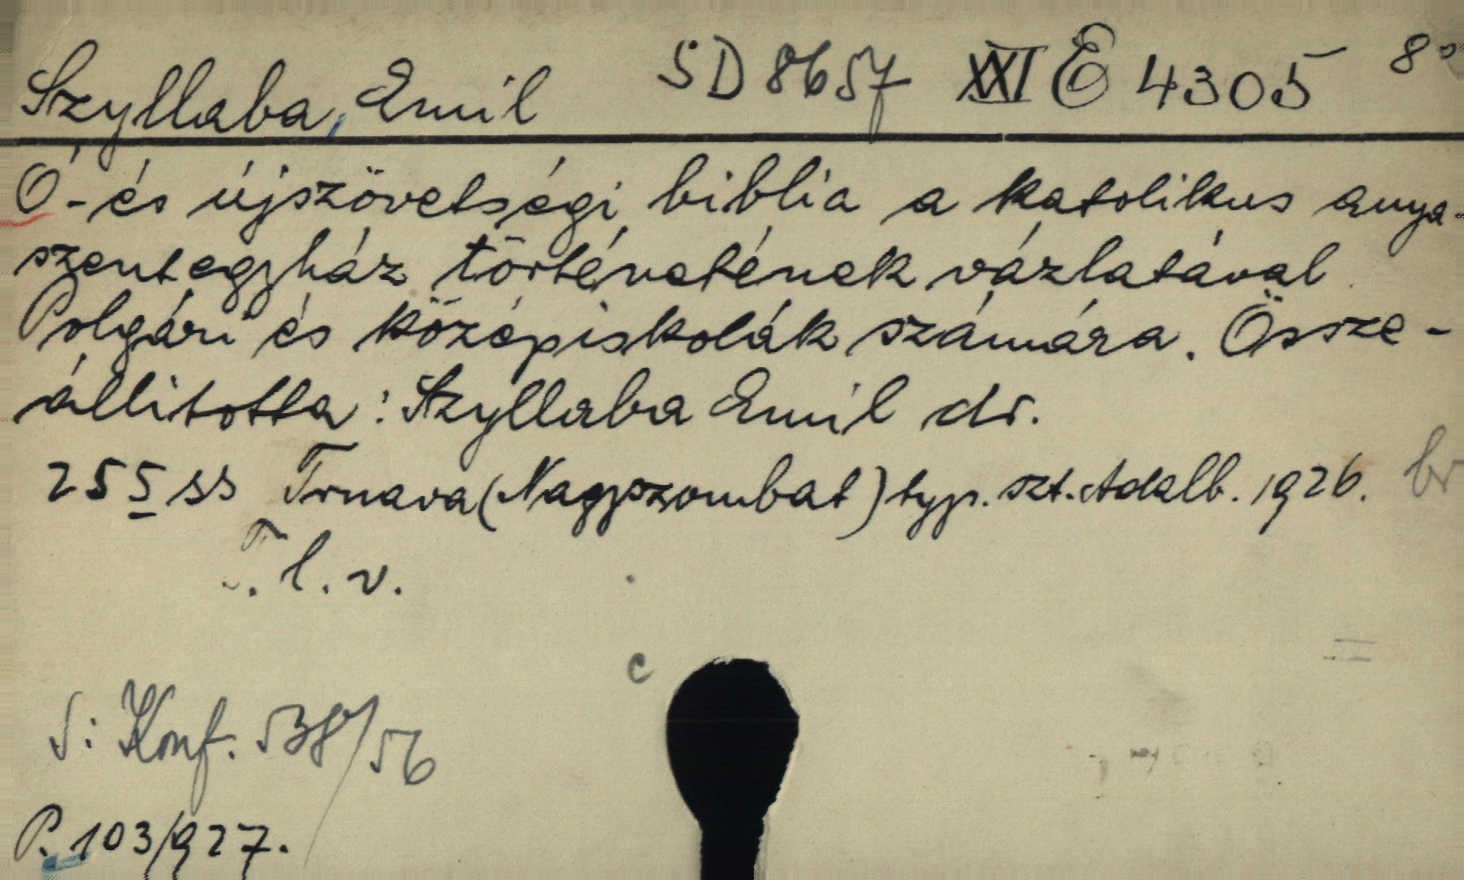 Szyllaba, Emil SD 8657 XXI E 4305 8°
Ó- és újszövetségi biblia a katolikus anya-
szentegyház történetének vázlatával
Polgári és középiskolák számára. Össze-
állitotta: Szyllaba Emil dr.
255 ss Trnava (Nagyszombat) typ. szt. Adalb. 1926. br
T. l. v.
c
S: Konf. 538/56
P. 103/927.